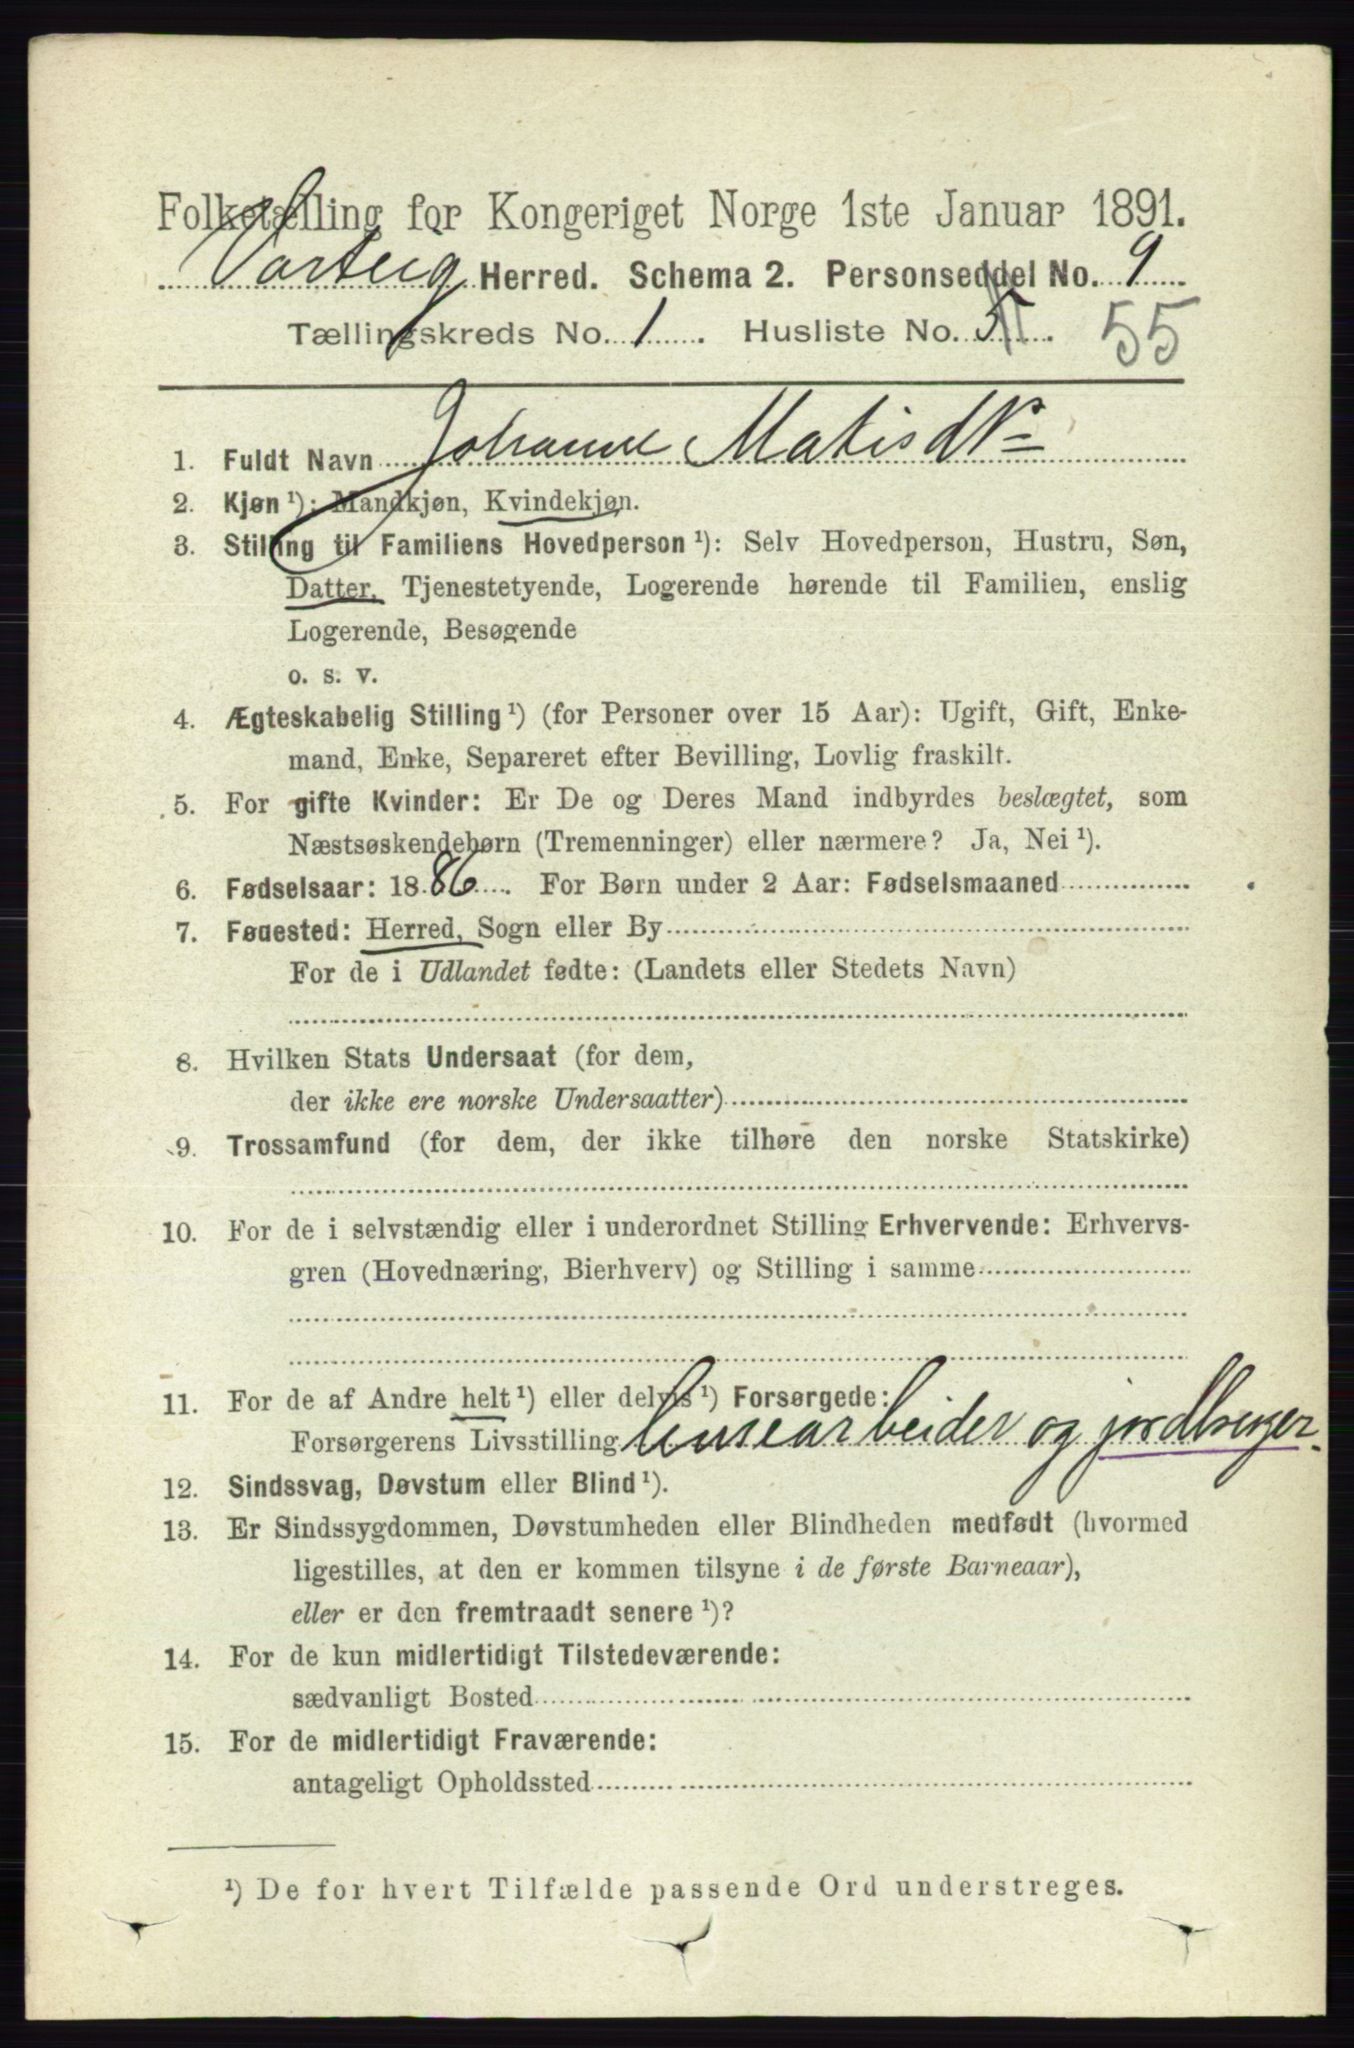 Folketælling for Kongeriget Norge 1ste Januar 1891.
Varteig Herred. Schema 2. Personseddel No. 9
Tællingskreds No. 1. Husliste No. 55
1. Fuldt Navn Johanne Matisd
2. Kjøn ¹): Mandkjøn, Kvindekjøn.
3. Stilling til Familiens Hovedperson ¹): Selv Hovedperson, Hustru, Søn,
Datter, Tjenestetyende, Logerende hørende til Familien, enslig
Logerende, Besøgende
o. s. v.
4. Ægteskabelig Stilling ¹) (for Personer over 15 Aar): Ugift, Gift, Enke-
mand, Enke, Separeret efter Bevilling, Lovlig fraskilt.
5. For gifte Kvinder: Er De og Deres Mand indbyrdes beslægtet, som
Næstsøskendebørn (Tremenninger) eller nærmere? Ja, Nei ¹).
6. Fødselsaar: 1886. For Børn under 2 Aar: Fødselsmaaned
7. Fødested: Herred, Sogn eller By
For de i Udlandet fødte: (Landets eller Stedets Navn)
8. Hvilken Stats Undersaat (for dem,
der ikke ere norske Undersaatter)
9. Trossamfund (for dem, der ikke tilhøre den norske Statskirke)
10. For de i selvstændig eller i underordnet Stilling Erhvervende: Erhvervs-
gren (Hovednæring, Bierhverv) og Stilling i samme
11. For de af Andre helt ¹) eller delvis ¹) Forsørgede:
Forsørgerens Livsstilling og
12. Sindssvag, Døvstum eller Blind ¹).
13. Er Sindssygdommen, Døvstumheden eller Blindheden medfødt (hvormed
ligestilles, at den er kommen tilsyne i de første Barneaar),
eller er den fremtraadt senere ¹)?
14. For de kun midlertidigt Tilstedeværende:
sædvanligt Bosted
15. For de midlertidigt Fraværende:
antageligt Opholdssted
¹) De for hvert Tilfælde passende Ord understreges.